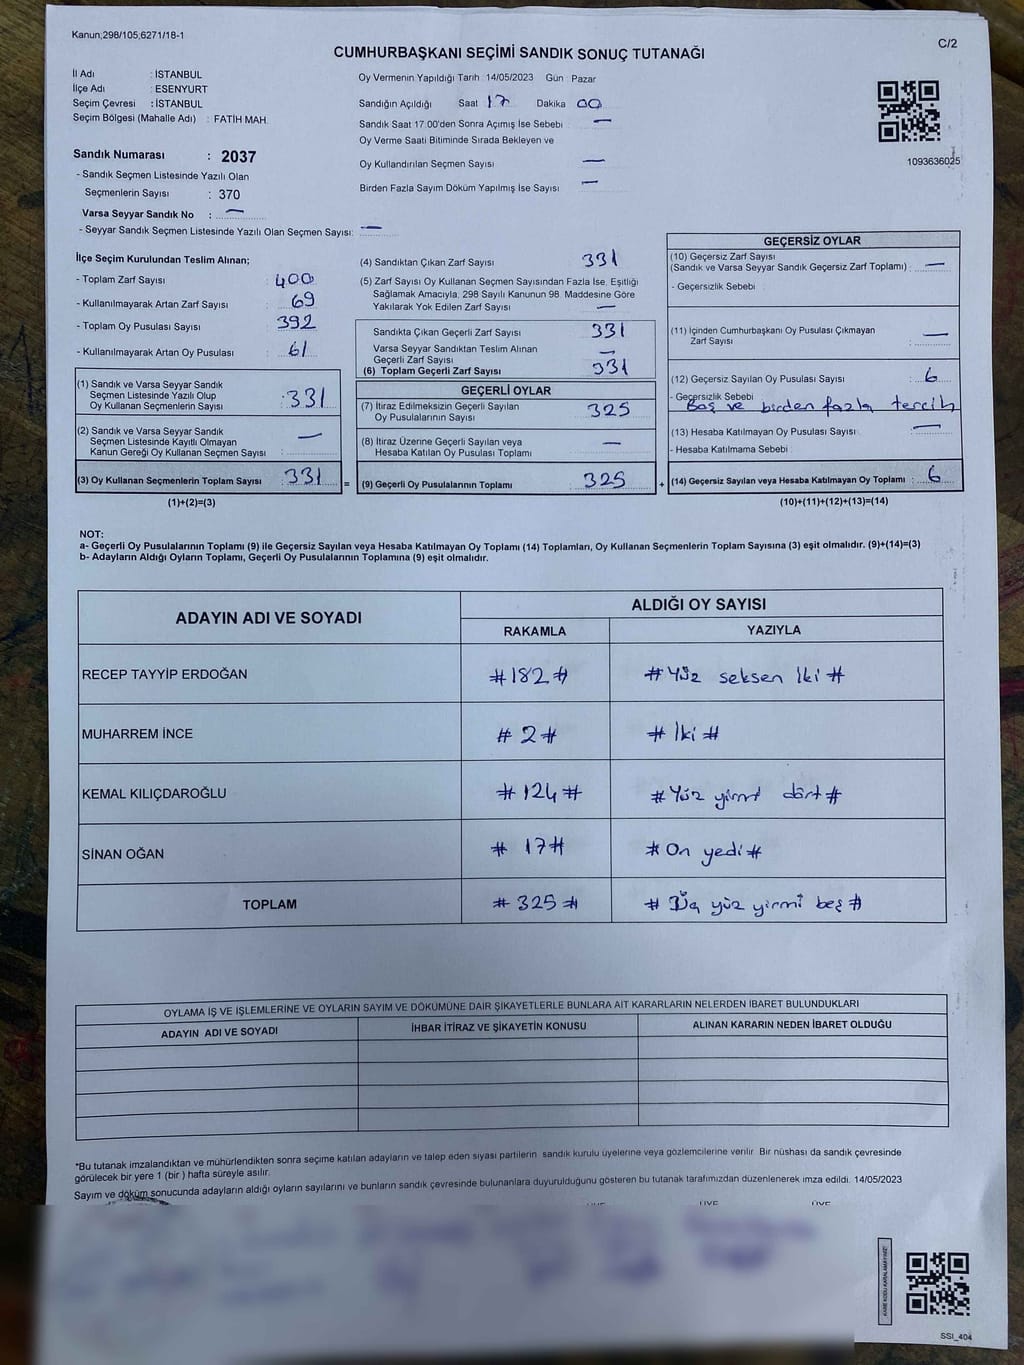 Kanun;298/105;6271/18-1
C/2
CUMHURBAŞKANI SEÇİMİ SANDIK SONUÇ TUTANAĞI
İl Adı : İSTANBUL
İlçe Adı : ESENYURT
Seçim Çevresi : İSTANBUL
Seçim Bölgesi (Mahalle Adı) : FATİH MAH.
Oy Vermenin Yapıldığı Tarih : 14/05/2023 Gün : Pazar
Sandığın Açıldığı Saat 17 Dakika 00
Sandık Saat 17:00'den Sonra Açımış İse Sebebi : —
Oy Verme Saati Bitiminde Sırada Bekleyen ve
Oy Kullandırılan Seçmen Sayısı —
Birden Fazla Sayım Döküm Yapılmış İse Sayısı —
1093636025
Sandık Numarası : 2037
- Sandık Seçmen Listesinde Yazılı Olan
Seçmenlerin Sayısı : 370
Varsa Seyyar Sandık No : —
- Seyyar Sandık Seçmen Listesinde Yazılı Olan Seçmen Sayısı: —
İlçe Seçim Kurulundan Teslim Alınan;
- Toplam Zarf Sayısı : 400
- Kullanılmayarak Artan Zarf Sayısı : 69
- Toplam Oy Pusulası Sayısı : 392
- Kullanılmayarak Artan Oy Pusulası : 61
(1) Sandık ve Varsa Seyyar Sandık
Seçmen Listesinde Yazılı Olup
Oy Kullanan Seçmenlerin Sayısı : 331
(2) Sandık ve Varsa Seyyar Sandık
Seçmen Listesinde Kayıtlı Olmayan
Kanun Gereği Oy Kullanan Seçmen Sayısı : —
(3) Oy Kullanan Seçmenlerin Toplam Sayısı : 331 =
(1)+(2)=(3)
(4) Sandıktan Çıkan Zarf Sayısı 331
(5) Zarf Sayısı Oy Kullanan Seçmen Sayısından Fazla İse, Eşitliği
Sağlamak Amacıyla; 298 Sayılı Kanunun 98. Maddesine Göre
Yakılarak Yok Edilen Zarf Sayısı —
Sandıkta Çıkan Geçerli Zarf Sayısı 331
Varsa Seyyar Sandıktan Teslim Alınan
Geçerli Zarf Sayısı —
(6) Toplam Geçerli Zarf Sayısı 331
GEÇERLİ OYLAR
(7) İtiraz Edilmeksizin Geçerli Sayılan
Oy Pusulalarının Sayısı 325
(8) İtiraz Üzerine Geçerli Sayılan veya
Hesaba Katılan Oy Pusulası Toplamı —
(9) Geçerli Oy Pusulalarının Toplamı 325 +
GEÇERSİZ OYLAR
(10) Geçersiz Zarf Sayısı
(Sandık ve Varsa Seyyar Sandık Geçersiz Zarf Toplamı) : —
- Geçersizlik Sebebi :
(11) İçinden Cumhurbaşkanı Oy Pusulası Çıkmayan
Zarf Sayısı : —
(12) Geçersiz Sayılan Oy Pusulası Sayısı : 6
- Geçersizlik Sebebi :
Boş ve birden fazla tercih
(13) Hesaba Katılmayan Oy Pusulası Sayısı : —
- Hesaba Katılmama Sebebi :
(14) Geçersiz Sayılan veya Hesaba Katılmayan Oy Toplamı : 6
(10)+(11)+(12)+(13)=(14)
NOT:
a- Geçerli Oy Pusulalarının Toplamı (9) ile Geçersiz Sayılan veya Hesaba Katılmayan Oy Toplamı (14) Toplamları, Oy Kullanan Seçmenlerin Toplam Sayısına (3) eşit olmalıdır. (9)+(14)=(3)
b- Adayların Aldığı Oyların Toplamı, Geçerli Oy Pusulalarının Toplamına (9) eşit olmalıdır.
ADAYIN ADI VE SOYADI ALDIĞI OY SAYISI
RAKAMLA YAZIYLA
RECEP TAYYİP ERDOĞAN #182# #Yüz seksen iki#
MUHARREM İNCE #2# #İki#
KEMAL KILIÇDAROĞLU #124# #Yüz yirmi dört#
SİNAN OĞAN #17# #On yedi#
TOPLAM #325# #Üç yüz yirmi beş#
OYLAMA İŞ VE İŞLEMLERİNE VE OYLARIN SAYIM VE DÖKÜMÜNE DAİR ŞİKAYETLERLE BUNLARA AİT KARARLARIN NELERDEN İBARET BULUNDUKLARI
ADAYIN ADI VE SOYADI İHBAR İTİRAZ VE ŞİKAYETİN KONUSU ALINAN KARARIN NEDEN İBARET OLDUĞU
*Bu tutanak imzalandıktan ve mühürlendikten sonra seçime katılan adayların ve talep eden siyasi partilerin sandık kurulu üyelerine veya gözlemcilerine verilir. Bir nüshası da sandık çevresinde
görülecek bir yere 1 (bir ) hafta süreyle asılır.
Sayım ve döküm sonucunda adayların aldığı oyların sayılarını ve bunların sandık çevresinde bulunanlara duyurulduğunu gösteren bu tutanak tarafımızdan düzenlenerek imza edildi. 14/05/2023
ÜYE ÜYE ÜYE
SSI_404